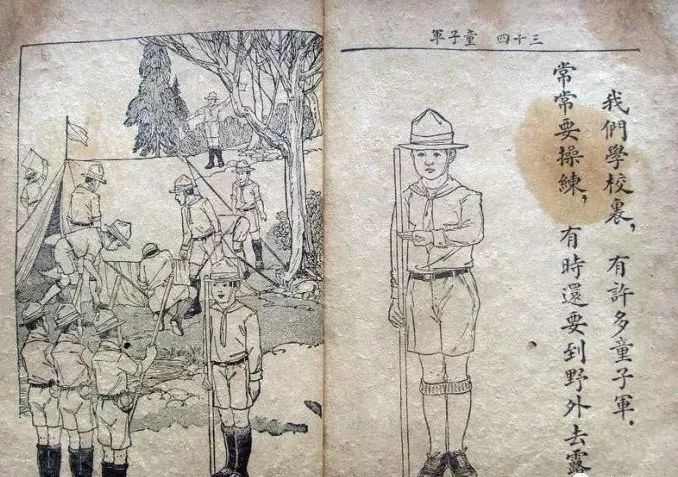 三十四　童子軍
我們學校裏，有許多童子軍．
常常要操練，有時還要到野外去露